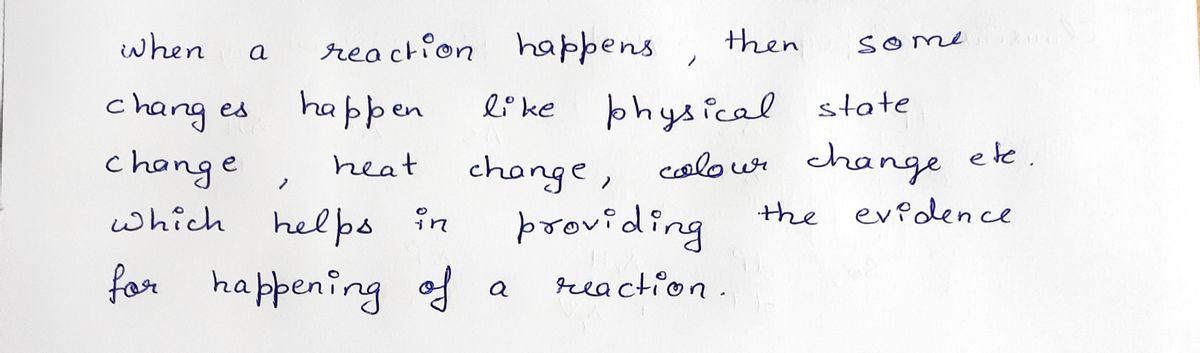 when a reaction happens, then some
changes happen like physical state
change, heat change, colour change etc.
which helps in providing the evidence
for happening of a reaction.